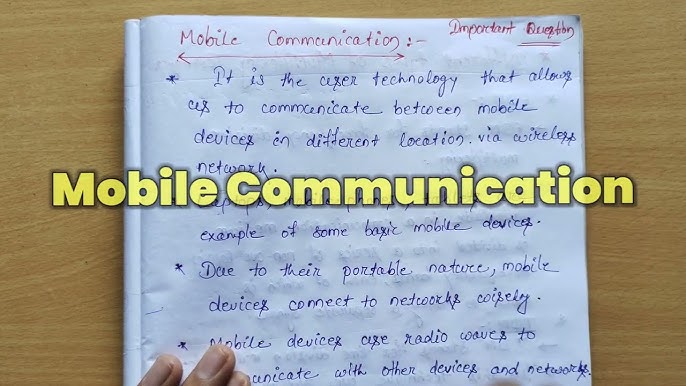 Important Question
Mobile Communication :-
* It is the user technology that allows
us to communicate between mobile
devices in different location. via wireless
network.
Mobile Communication
example of some basic mobile devices.
* Due to their portable nature, mobile
devices connect to networks wisely.
* Mobile devices use radio waves to
communicate with other devices and networks.